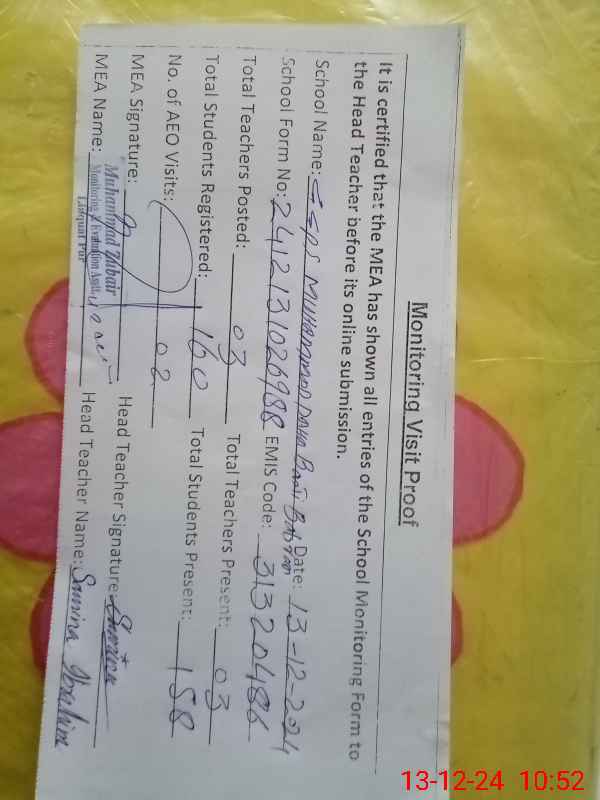 Monitoring Visit Proof
It is certified that the MEA has shown all entries of the School Monitoring Form to
the Head Teacher before its online submission.
School Name: GGPS Muhammad Date: 13-12-2024
School Form No: EMIS Code: 31320486
Total Teachers Posted: 03 Total Teachers Present: 03
Total Students Registered: 160 Total Students Present: 158
No. of AEO Visits: 02
MEA Signature: Head Teacher Signature:
MEA Name: Muhammad Zubair Head Teacher Name: Samina Ibrahim
Monitoring & Evaluation Asstt.
Liaquat Pur
13-12-24 10:52